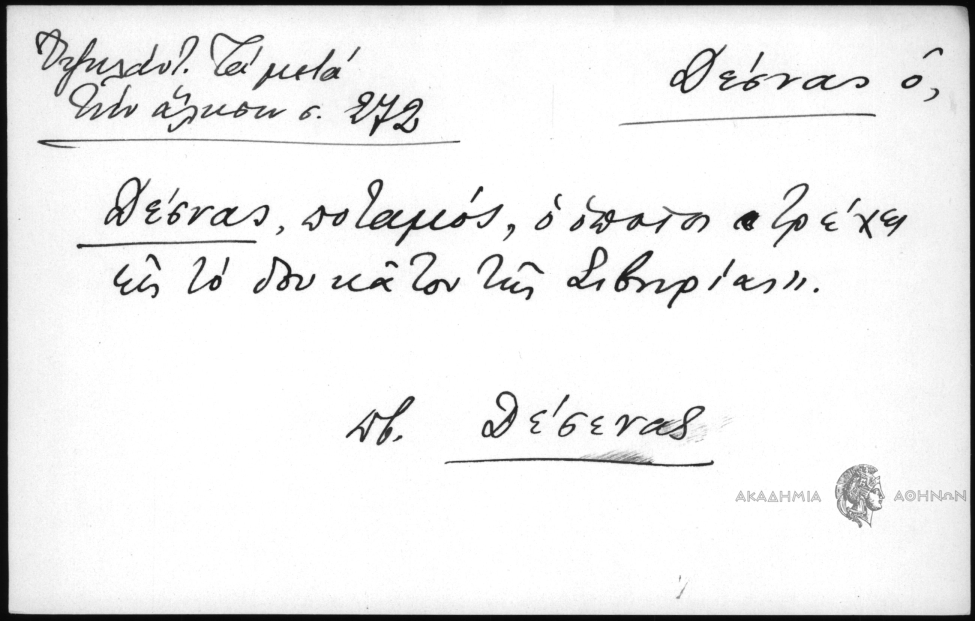 Ὑψηλάντ. Τά μετά
τήν ἅλωσιν σ. 272
Δέσνας ὁ,
Δέσνας, ποταμός, ὁ ὁποῖος «τρέχει
εἰς τό δουκᾶτον τῆς Σιβηρίας».
πβ. Δέσενας
ΑΚΑΔΗΜΙΑ ΑΘΗΝΩΝ